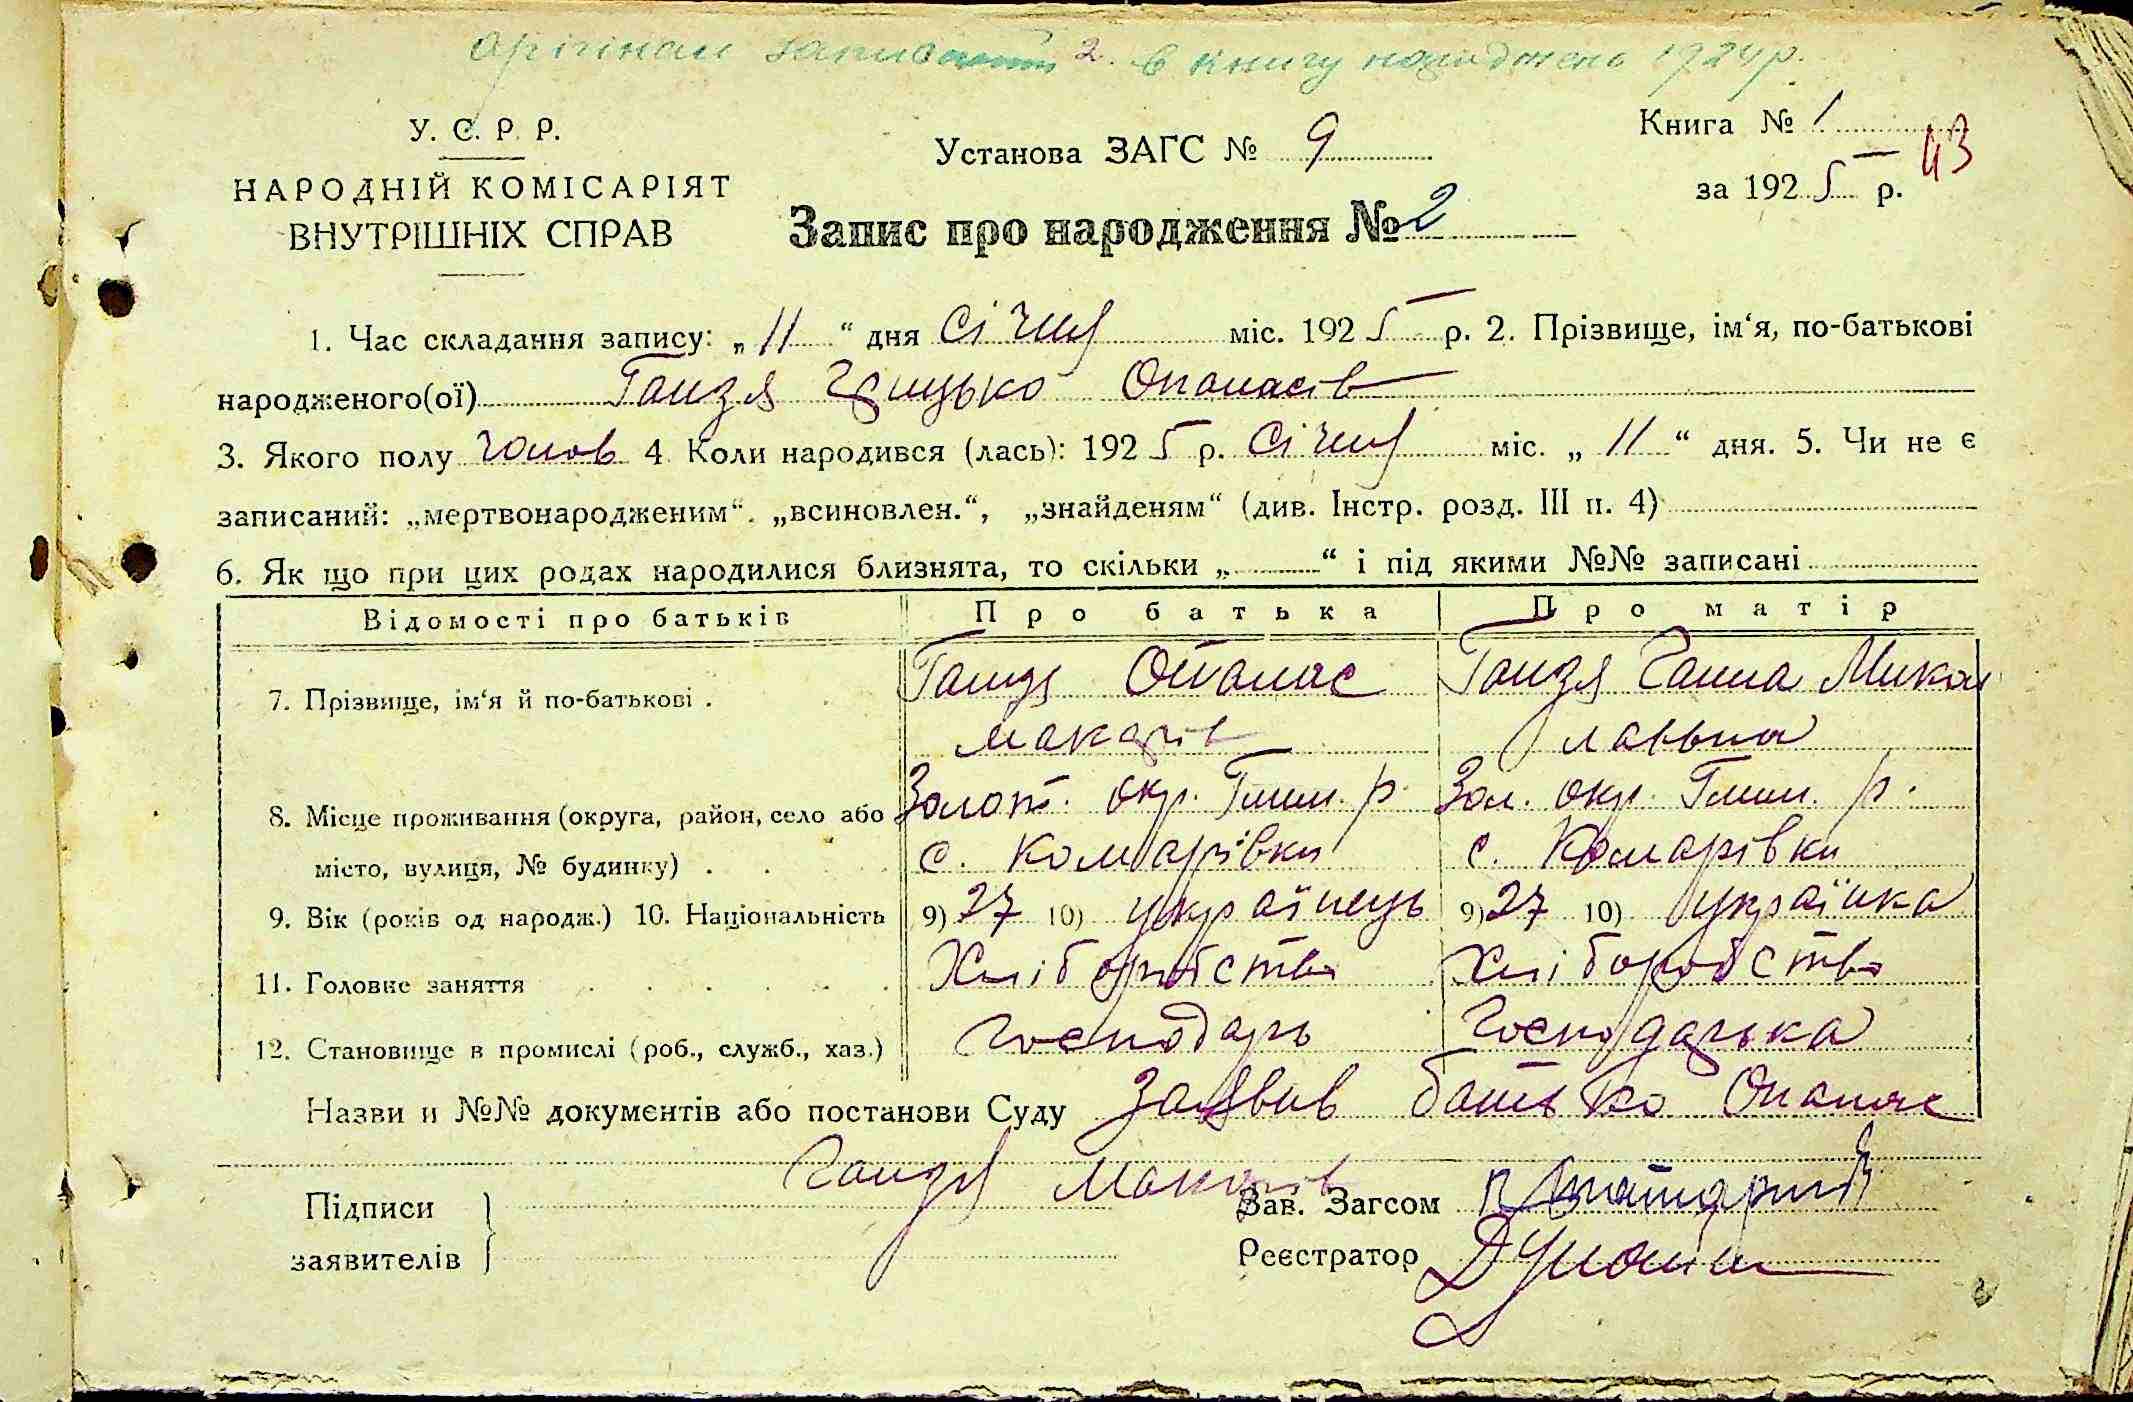 оригінал 2. в книгу народжень 1924 р.
У. С. Р. Р.
НАРОДНІЙ КОМІСАРІЯТ
ВНУТРІШНІХ СПРАВ
Установа ЗАГС № 9
Книга № 1
43
за 1925 р.
Запис про народження № 2
1. Час складання запису: „11“ дня Січня міс. 1925 р. 2. Прізвище, ім‘я, по-батькові
народженого(ої) Гандзя Грицько Опанасів
3. Якого полу чолов 4. Коли народився (лась): 1925 р. Січня міс. „11“ дня. 5. Чи не є
записаний: „мертвонародженим“. „всиновлен.“, „знайденям“ (див. Інстр. розд. III п. 4)
6. Як що при цих родах народилися близнята, то скільки „ “ і під якими №№ записані
Відомості про батьків Про батька Про матір
7. Прізвище, ім‘я й по-батькові . Опанас Ганна Микол
Макарів лаївна
8. Місце проживання (округа, район, село або Золот. окр. р. Зол. окр. р.
місто, вулиця, № будинку) . с. Комарівки с. Комарівки
9. Вік (років од народж.) 10. Національність 9) 27 10) українець 9) 27 10) українка
11. Головне заняття Хліборобство Хліборобство
12. Становище в промислі (роб., служб., хаз.) Господарь Господарька
Назви и №№ документів або постанови Суду Заявив батько Опанас
Макарів
Підписи
заявителів
Зав. Загсом
Реєстратор